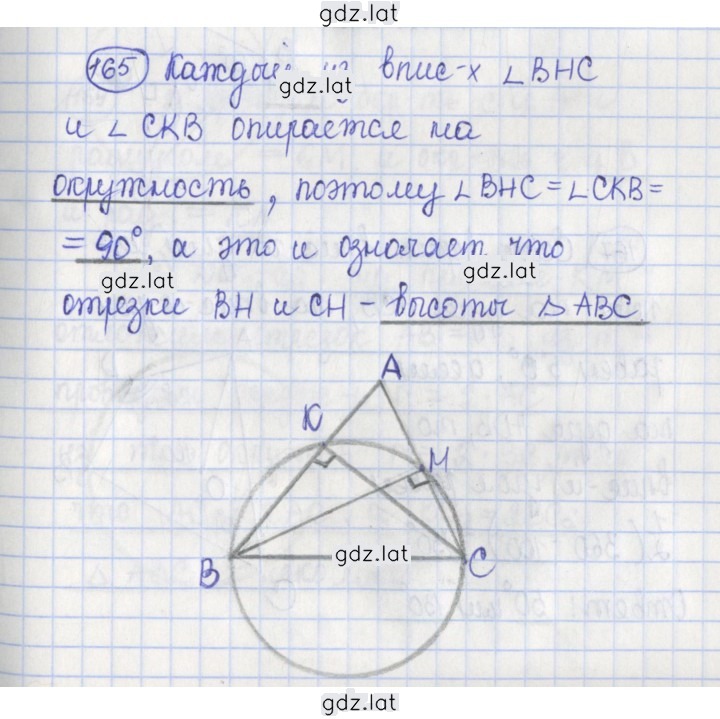 gdz.lat
165 Каждый из впис-х ∠BHC
gdz.lat
и ∠CKB опирается на
окружность, поэтому ∠BHC = ∠CKB =
= 90°, а это и означает что
gdz.lat gdz.lat
отрезки BH и CH - высоты △ABC
A
K
H
B gdz.lat C
gdz.lat